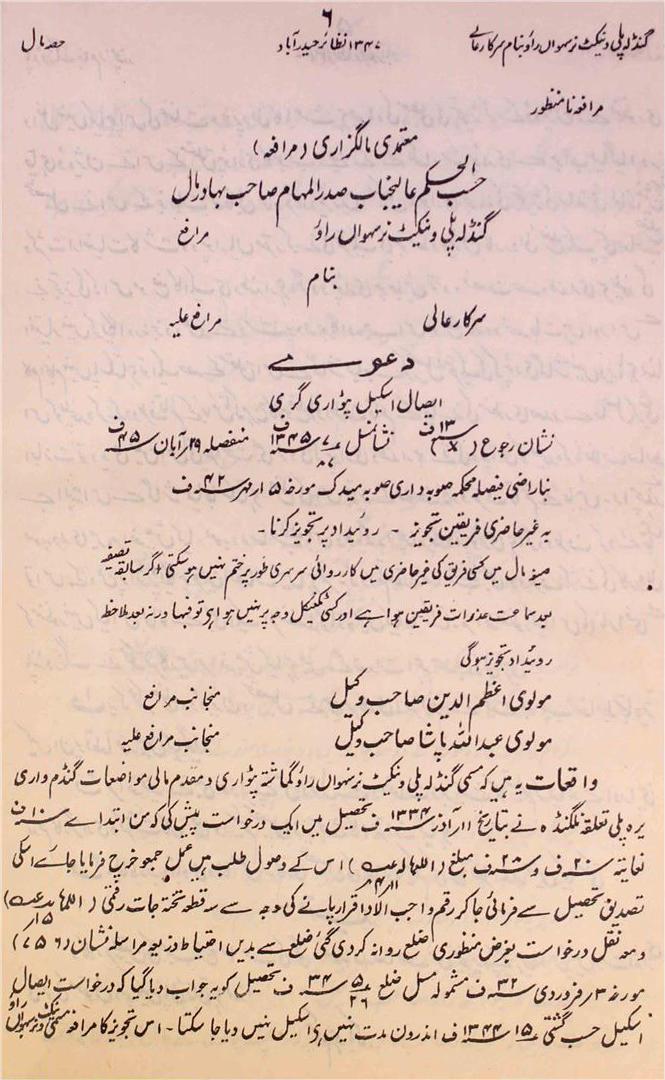 ۶
گنڈلہ پلی ونکیٹ نرسہواں راؤ بنام سرکار عالی ۱۳۴۷ نظائر حیدرآباد حصہ مال
مرافعہ نامنظور
معتمدی مالگزاری (مرافعہ)
حسب الحکم عالیجناب صدر المہام صاحب بہادر مال
گنڈلہ پلی ونکیٹ نرسہواں راؤ مرافع
بنام
سرکار عالی مرافع علیہ
دعوے
ایصال اسکیل پٹواری گری
نشان رجوع (×) ۱۳ ف نشان مثل ۷ ۱۳۴۵ ف منفصلہ ۲۹ آبان ۴۵ ف
بناراضی فیصلہ محکمہ صوبہ داری صوبہ میدک مورخہ ۵ ار مہر ۴۲ ف
بہ غیر حاضری فریقین تجویز ۔ روئیداد پر تجویز کرنا ۔
صیغہ مال میں کسی فریق کی غیر حاضری میں کارروائی سرسری طور پر ختم نہیں ہوسکتی اگر سابقہ تصفیہ
بعد سماعت عذرات فریقین ہوا ہے اور کسی ٹکنیکل وجہ پر نہیں ہوا ہے تو فبہا ورنہ بعد ملاحظہ
روئیداد تجویز ہوگی
مولوی اعظم الدین صاحب وکیل منجانب مرافع
مولوی عبداللہ پاشا صاحب وکیل منجانب مرافع علیہ
واقعات یہ ہیں کہ مسمی گنڈلہ پلی ونکیٹ نرسہواں راؤ گماشتہ پٹواری و مقدم مالی مواضعات گنڈم واری
یرہ پلی تعلقہ نلگنڈہ نے بتاریخ ۱۱ر آذر ۱۳۳۴ ف تحصیل میں ایک درخواست پیش کی کہ من ابتداے ۱۰ ف
لغایتہ ۲۰ ف و ۲۸ ف مبلغ اس کے وصول طلب ہیں عمل جمع و خرچ فرمایا جائے اسکی
تصدیق تحصیل سے فرمائی جاکر رقم واجب الادا قرار پانے کی وجہ سے سہ قطعہ تختہ جات رقمی
ومعہ نقل درخواست بغرض منظوری ضلع روانہ کردی گئی ضلع سے بدیں احتیاط ذریعہ مراسلہ نشان (۷۵۶)
مورخہ ۳ر فروردی ۳۲ ف مشمولہ مسل ضلع ۵ ۲۶ ۳۴ ف تحصیل کو یہ جواب دیا گیا کہ درخواست ایصال
اسکیل حسب گشتی ۱۵ ۱۳۴۴ ف اندرون مدت نہیں ہے اسکیل نہیں دیا جا سکتا ۔ اس تجویز کا مرافعہ مسمی ونکیٹ نرسہواں راؤ